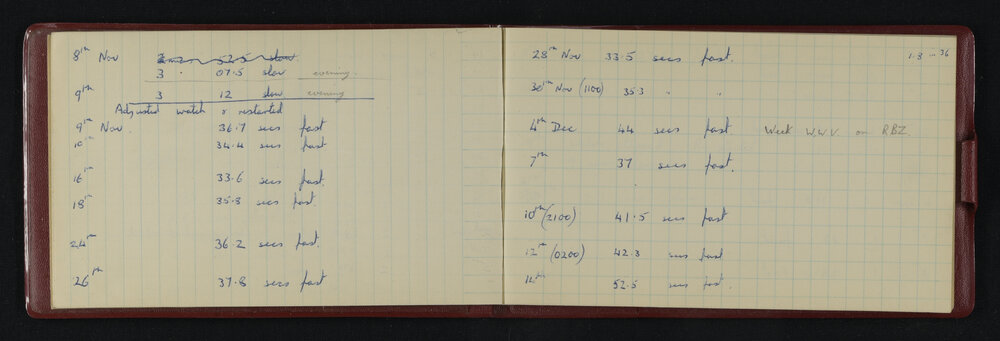 8th Nov 2 m 52.5 slow
3 " 07.5 slow evening
9th 3 12 slow evening
Adjusted watch & restarted
9th Nov 36.7 secs fast
10th 34.4 secs fast
16th 33.6 secs fast.
18th 35.8 secs fast.
24th 36.2 secs fast.
26th 37.8 secs fast
28th Nov 33.5 secs fast. 1.3 ... 36
30th Nov (1100) 35.3 " "
4th Dec 44 secs fast. Week W.W.V. on RBZ
7th 37 secs fast.
10th (2100) 41.5 secs fast
12th (0200) 42.3 secs fast
52.5 secs fast.